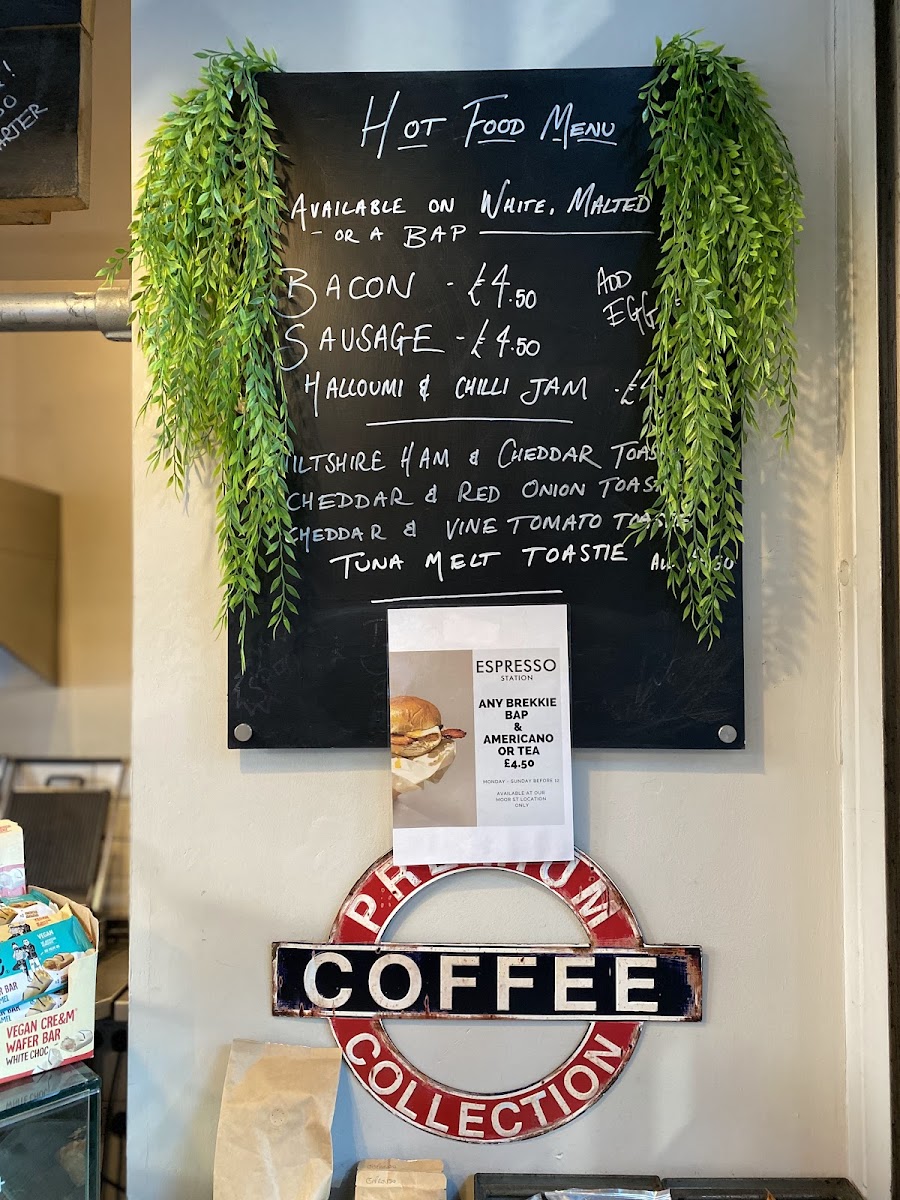 HOT FOOD MENU
AVAILABLE ON WHITE, MALTED
- OR A BAP
BACON - £4.50
ADD
EGG
SAUSAGE - £4.50
HALLOUMI & CHILLI JAM - £4
WILTSHIRE HAM & CHEDDAR TOAS
CHEDDAR & RED ONION TOAS
CHEDDAR & VINE TOMATO TOASTIE
TUNA MELT TOASTIE
ESPRESSO
STATION
ANY BREKKIE
BAP
&
AMERICANO
OR TEA
£4.50
MONDAY - SUNDAY BEFORE 12
AVAILABLE AT OUR
MOOR ST LOCATION
ONLY
PREMIUM
COFFEE
COLLECTION
VEGAN
VEGAN CRE&M
WAFER BAR
WHITE CHOC